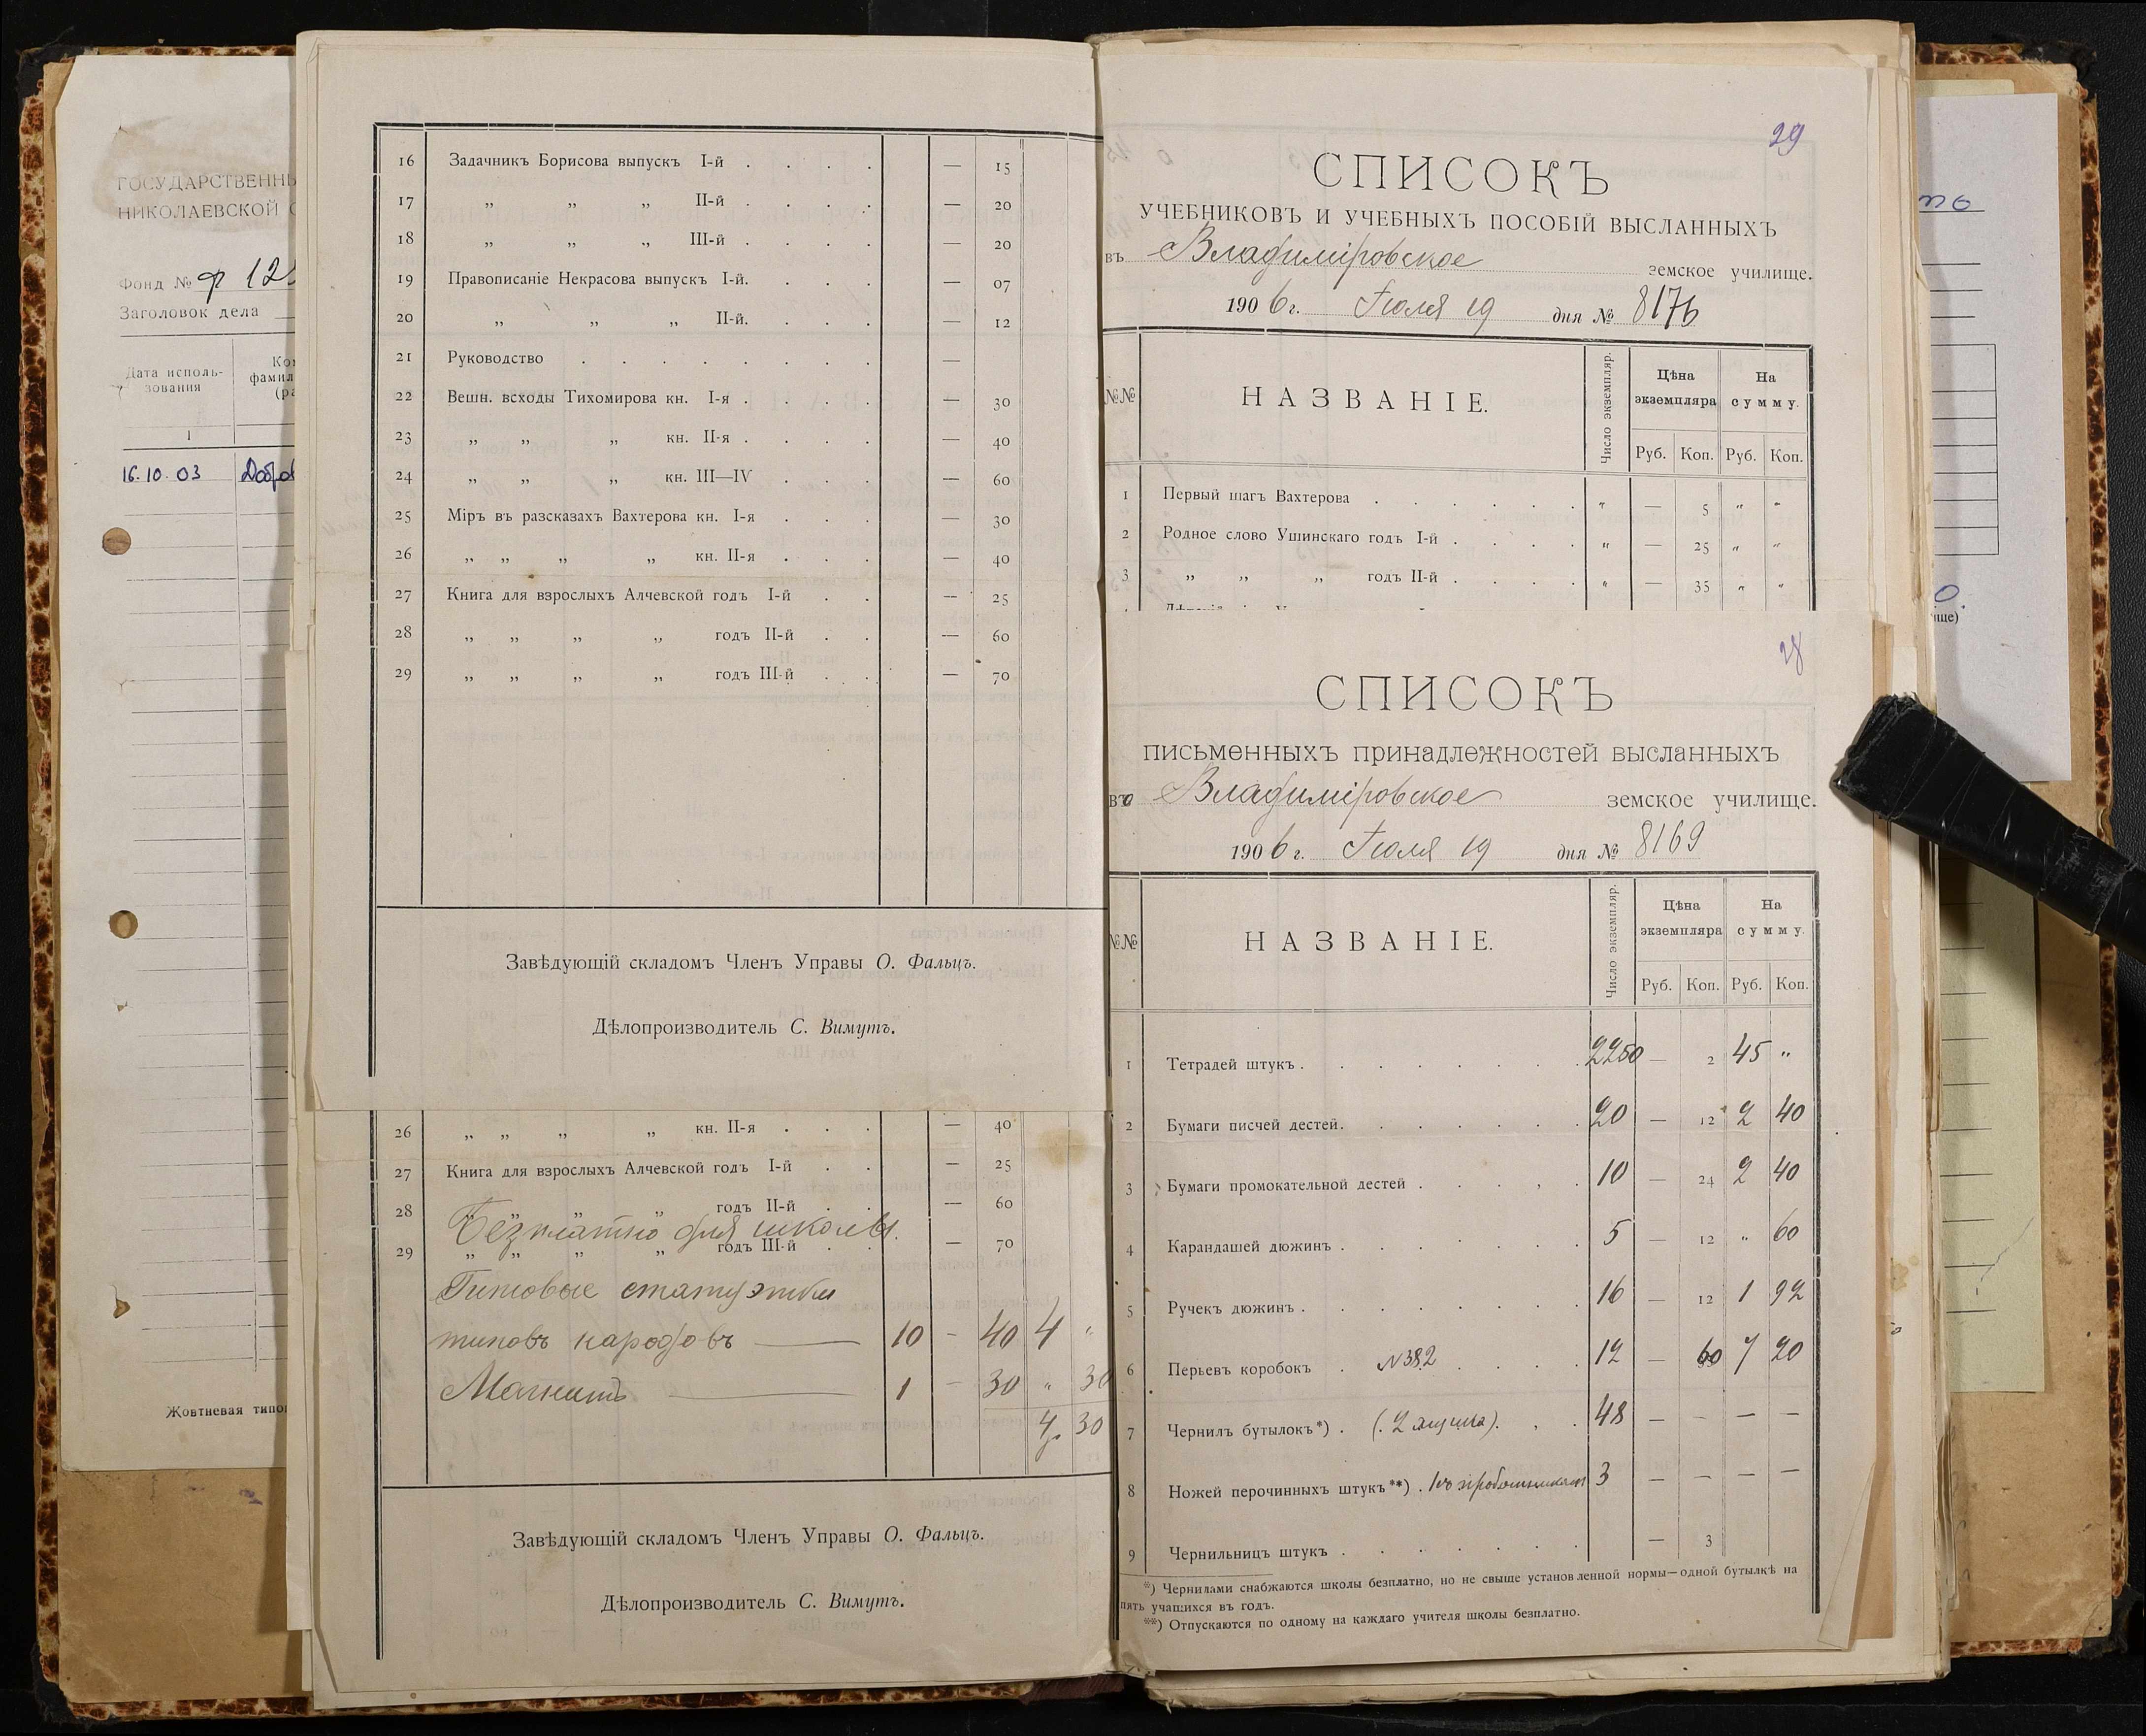 ГОСУДАРСТВЕННЫ
НИКОЛАЕВСКОЙ О
Фонд № Ф 12
Заголовок дела
Дата исполь-
зования
фамил
1
16.10.03
Жовтневая типо
16 Задачникъ Борисова выпускъ I-й . . . . — 15
17 „ „ „ II-й . . . . — 20
18 „ „ „ III-й . . . . — 20
19 Правописаніе Некрасова выпускъ I-й. . . . — 07
20 „ „ „ II-й. . . . — 12
21 Руководство . . . . . . . . —
22 Вешн. всходы Тихомирова кн. I-я . . . . — 30
23 „ „ „ кн. II-я . . . . — 40
24 „ „ „ кн. III—IV . . . — 60
25 Міръ въ разсказахъ Вахтерова кн. I-я . . . — 30
26 „ „ „ „ кн. II-я . . . — 40
27 Книга для взрослыхъ Алчевской годъ I-й . . — 25
28 „ „ „ „ годъ II-й . . — 60
29 „ „ „ „ годъ III-й . . — 70
Завѣдующій складомъ Членъ Управы О. Фальцъ.
Дѣлопроизводитель С. Вимутъ.
26 „ „ „ „ кн. II-я . . . — 40
27 Книга для взрослыхъ Алчевской годъ I-й . . — 25
28 „ „ „ „ годъ II-й . . — 60
Безплатно для школы.
29 „ „ „ „ годъ III-й . . — 70
Гипсовые статуэтки
типовъ народовъ — 10 – 40 4 "
Магнитъ — 1 – 30 " 30
4 р. 30
Завѣдующій складомъ Членъ Управы О. Фальцъ.
Дѣлопроизводитель С. Вимутъ.
29
СПИСОКЪ
УЧЕБНИКОВЪ И УЧЕБНЫХЪ ПОСОБІЙ ВЫСЛАННЫХЪ
въ Владиміровское земское училище.
1906 г. Іюля 19 дня № 8176
№№ НАЗВАНІЕ. Число экземпляр. Цѣна экземпляра На сумму.
Руб. Коп. Руб. Коп.
1 Первый шагъ Вахтерова . . . . . . " — 5 " "
2 Родное слово Ушинскаго годъ I-й . . . . " — 25 " "
3 „ „ „ годъ II-й . . . . " — 35 " "
28
СПИСОКЪ
письменныхъ принадлежностей высланныхъ
въ Владиміровское земское училище.
1906 г. Іюля 19 дня № 8169
№№ НАЗВАНІЕ. Число экземпляр. Цѣна экземпляра На сумму.
Руб. Коп. Руб. Коп.
1 Тетрадей штукъ . . . . . . . . 2250 — 2 45 "
2 Бумаги писчей дестей. . . . . . . 20 — 12 2 40
3 Бумаги промокательной дестей . . . . . 10 — 24 2 40
4 Карандашей дюжинъ . . . . . . . 5 — 12 " 60
5 Ручекъ дюжинъ . . . . . . . . 16 — 12 1 92
6 Перьевъ коробокъ . №382 . . . . 12 — 60 7 20
7 Чернилъ бутылокъ*) . (2 ящика). . . 48 — – — –
8 Ножей перочинныхъ штукъ**) . 3 — – — –
9 Чернильницъ штукъ . . . . . . . — 3
*) Чернилами снабжаются школы безплатно, но не свыше установленной нормы—одной бутылкѣ на
пять учащихся въ годъ.
**) Отпускаются по одному на каждаго учителя школы безплатно.